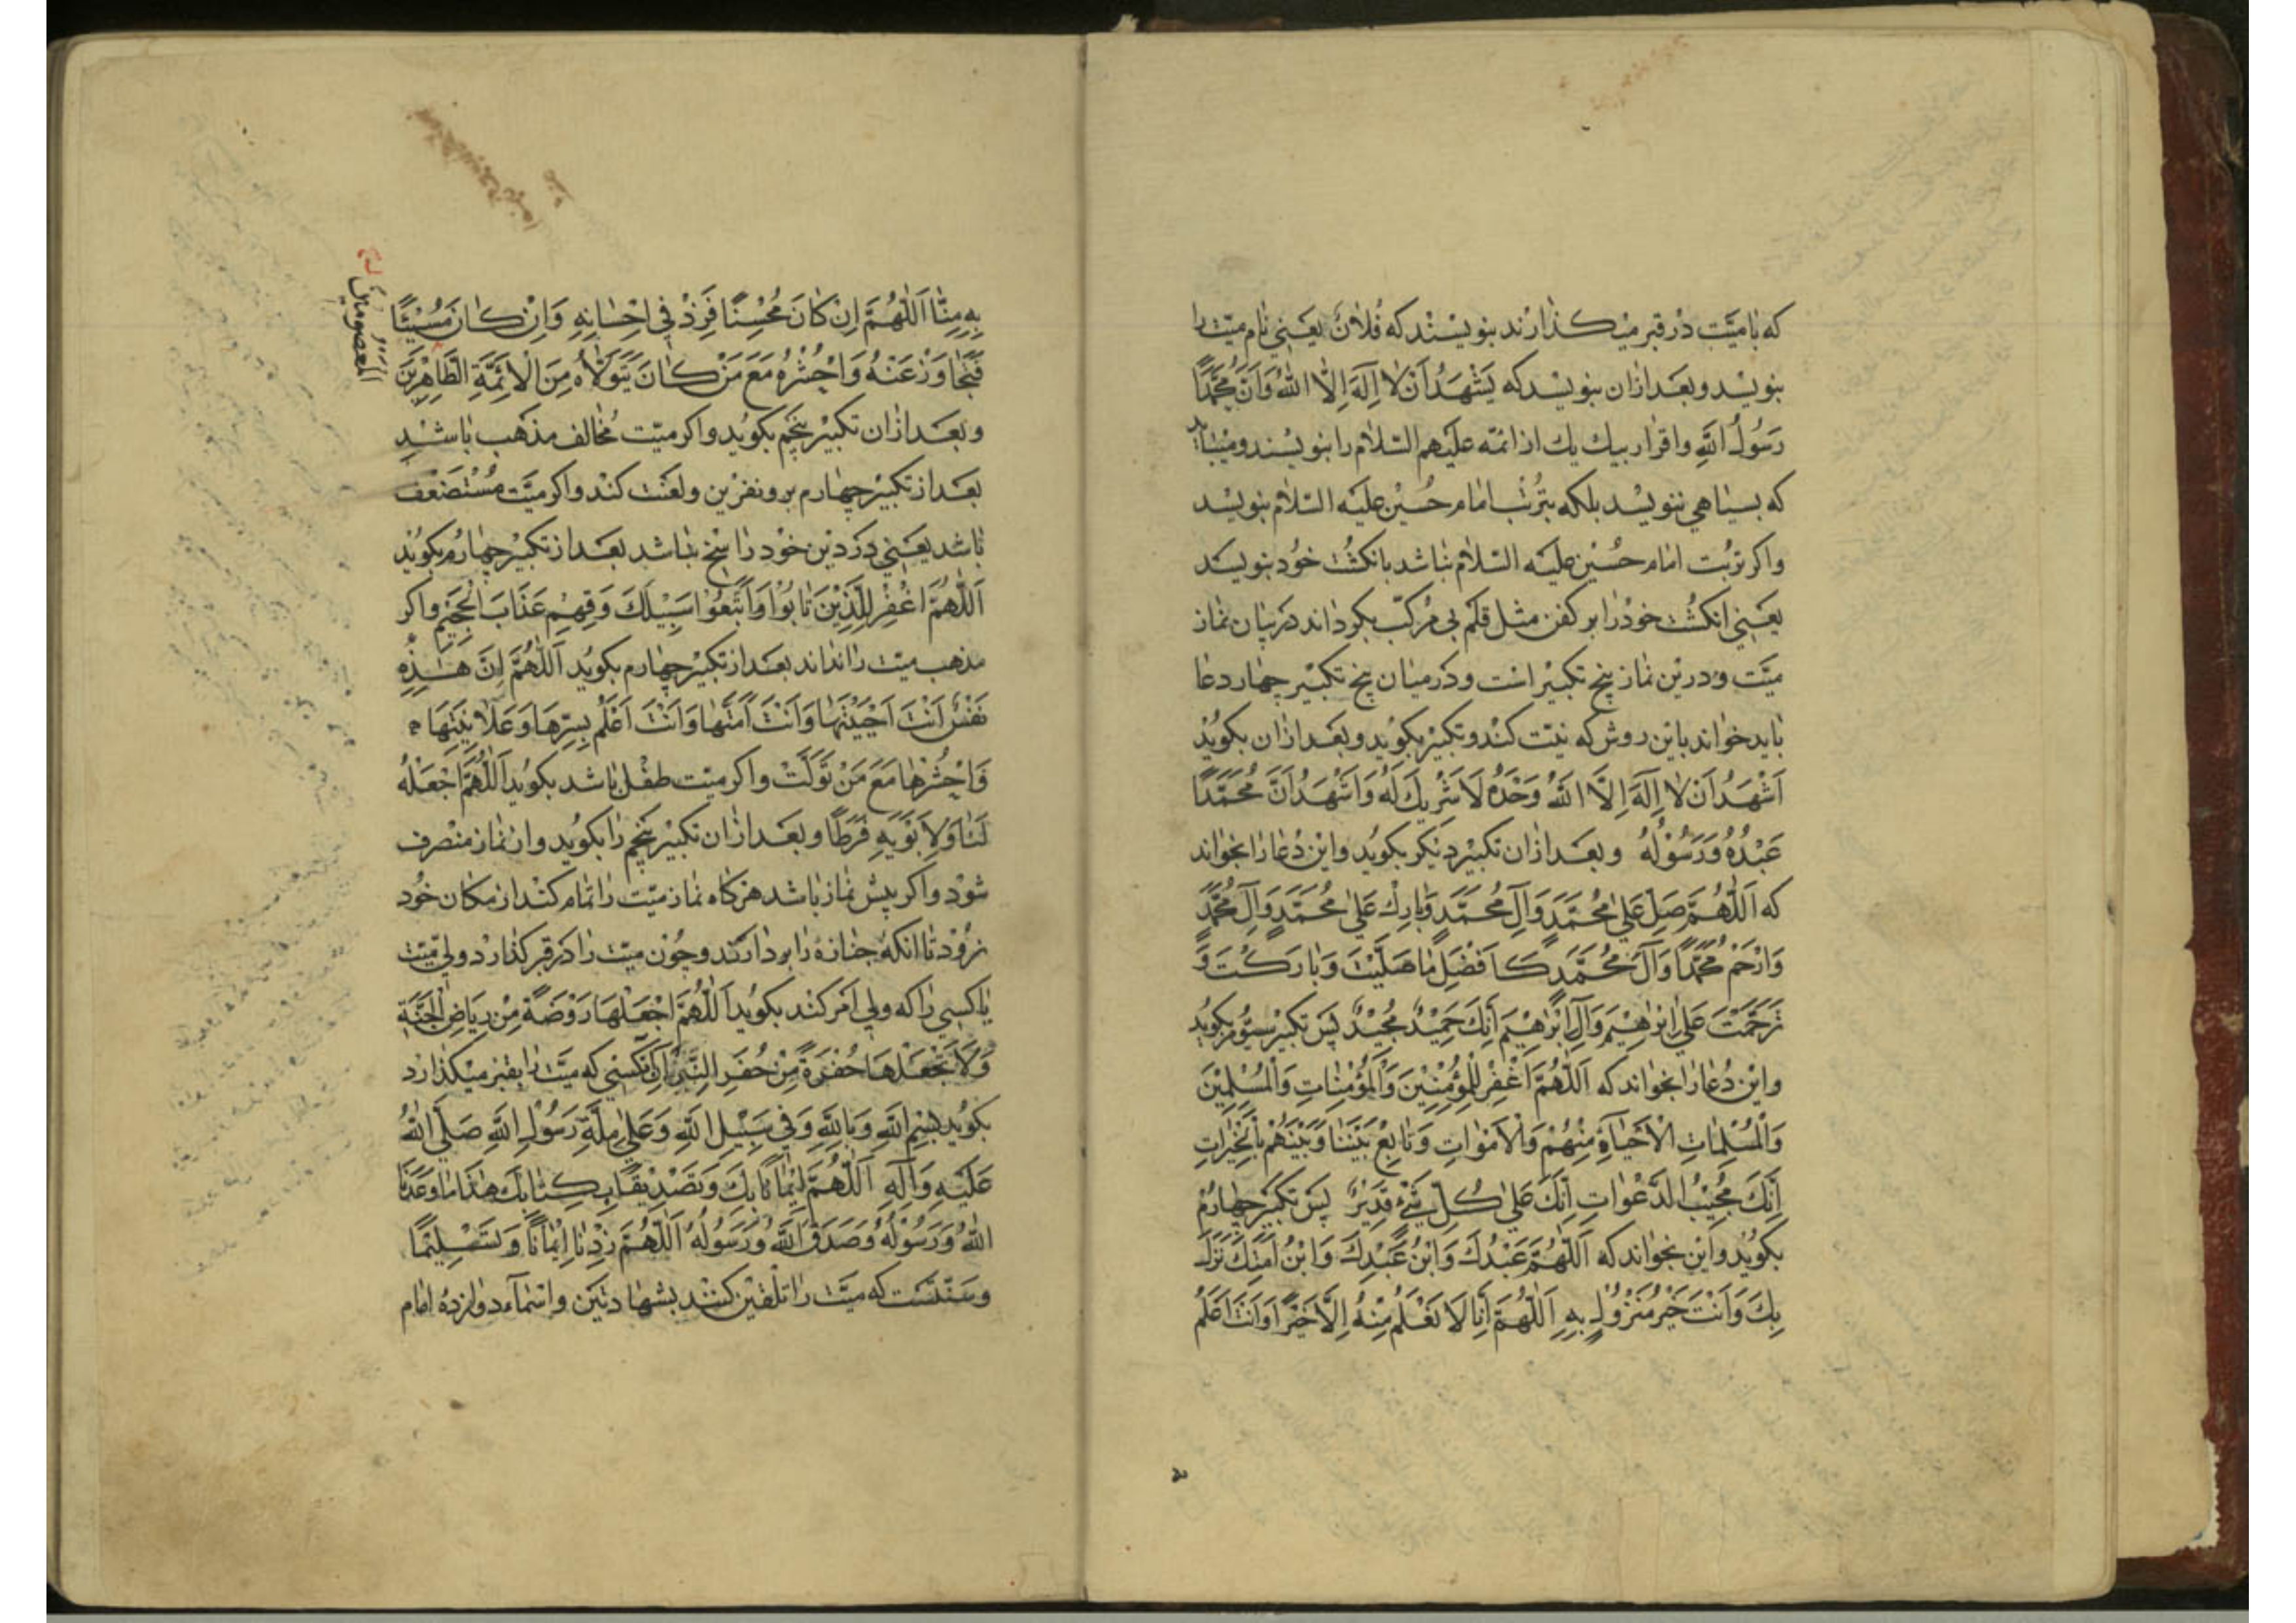 که بامیّت در قبر میکذارند بنویسند که فلان یعنی نام میّت را
بنویسد و بعد ازان بنویسد که یَشْهَدُ اَنْ لا اِلَهَ اِلَّا اللّٰهُ وَاَنَّ مُحَمَّدًا
رَسُولُ اللّٰهِ واقرار بیك یك از ائمّه علیهم السّلام را بنویسند و میباید
که بسیاهی ننویسد بلکه بتُربت امام حُسین علیه السّلام بنویسد
واکر تُربت امام حُسین علیه السّلام نباشد بانکشت خود بنویسد
یعنی انکشت خود را بر کفن مثل قلم بی مُرکّب بکرداند در بیان نماز
میّت و درین نماز پنج تکبیر است و در میان پنج تکبیر چهار دعا
باید خواند باین روش که نیّت کند و تکبیر بکوید و بعد ازان بکوید
اَشْهَدُ اَنْ لا اِلَهَ اِلَّا اللّٰهُ وَحْدَهُ لَا شَرِیكَ لَهُ وَاَشْهَدُ اَنَّ مُحَمَّدًا
عَبْدُهُ وَرَسُوْلُهُ و بعد ازان تکبیر دیکر بکوید واین دُعا را بخواند
که اَللّٰهُمَّ صَلِّ عَلٰی مُحَمَّدٍ وَآلِ مُحَمَّدٍ وَبَارِكْ عَلٰی مُحَمَّدٍ وَآلِ مُحَمَّدٍ
وَارْحَمْ مُحَمَّدًا وَآلَ مُحَمَّدٍ کَاَفْضَلِ مَا صَلَّیْتَ وَبَارَکْتَ وَ
تَرَحَّمْتَ عَلٰی اِبْرٰهِیْمَ وَآلِ اِبْرٰهِیْمَ اِنَّكَ حَمِیْدٌ مَجِیْدٌ پس تکبیر سیّوم بکوید
واین دُعا را بخواند که اَللّٰهُمَّ اغْفِرْ لِلْمُؤْمِنِیْنَ وَالْمُؤْمِنَاتِ وَالْمُسْلِمِیْنَ
وَالْمُسْلِمَاتِ الْاَحْیَآءِ مِنْهُمْ وَالْاَمْوَاتِ وَتَابِعْ بَیْنَنَا وَبَیْنَهُمْ بِالْخَیْرَاتِ
اِنَّكَ مُجِیْبُ الدَّعَوَاتِ اِنَّكَ عَلٰی کُلِّ شَیْءٍ قَدِیْرٌ پس تکبیر چهارم
بکوید واین بخواند که اَللّٰهُمَّ عَبْدُكَ وَابْنُ عَبْدِكَ وَابْنُ اَمَتِكَ نَزَلَ
بِكَ وَاَنْتَ خَیْرُ مَنْزُوْلٍ بِهِ اَللّٰهُمَّ اِنَّا لَا نَعْلَمُ مِنْهُ اِلَّا خَیْرًا وَاَنْتَ اَعْلَمُ
بِهِ مِنَّا اَللّٰهُمَّ اِنْ کَانَ مُحْسِنًا فَزِدْ فِی اِحْسَانِهِ وَاِنْ کَانَ مُسِیْئًا
فَتَجَاوَزْ عَنْهُ وَاحْشُرْهُ مَعَ مَنْ کَانَ یَتَوَلَّاهُ مِنَ الْاَئِمَّةِ الطَّاهِرِیْنَ
المعصومین
و بعد ازان تکبیر پنجم بکوید واکر میّت مُخالف مذهب باشد
بعد از تکبیر چهارم برو نفرین و لعنت کند واکر میّت مُسْتَضْعَف
باشد یعنی در دین خود راسخ نباشد بعد از تکبیر چهارم بکوید
اَللّٰهُمَّ اغْفِرْ لِلَّذِیْنَ تَابُوْا وَاتَّبَعُوْا سَبِیْلَكَ وَقِهِمْ عَذَابَ الْجَحِیْمِ واکر
مذهب میّت را نداند بعد از تکبیر چهارم بکوید اَللّٰهُمَّ اِنَّ هٰذِهِ
نَفْسٌ اَنْتَ اَحْیَیْتَهَا وَاَنْتَ اَمَتَّهَا وَاَنْتَ اَعْلَمُ بِسِرِّهَا وَعَلَانِیَتِهَا
وَاحْشُرْهَا مَعَ مَنْ تَوَلَّتْ واکر میّت طفل باشد بکوید اَللّٰهُمَّ اجْعَلْهُ
لَنَا وَلِاَبَوَیْهِ فَرَطًا و بعد ازان تکبیر پنجم را بکوید و از نماز منصرف
شود واکر پیش نماز باشد هرکاه نماز میّت را تمام کند از مکان خود
نرود تا انکه جنازه را بردارند و چون میّت را در قبر کذارد ولی میّت
یا کسی را که ولی امر کند بکوید اَللّٰهُمَّ اجْعَلْهَا رَوْضَةً مِنْ رِیَاضِ الْجَنَّةِ
وَلَا تَجْعَلْهَا حُفْرَةً مِنْ حُفَرِ النِّیْرَانِ کسی که میّت را بقبر میکذارد
بکوید بِسْمِ اللّٰهِ وَبِاللّٰهِ وَفِی سَبِیْلِ اللّٰهِ وَعَلٰی مِلَّةِ رَسُوْلِ اللّٰهِ صَلَّی اللّٰهُ
عَلَیْهِ وَآلِهِ اَللّٰهُمَّ اِیْمَانًا بِكَ وَتَصْدِیْقًا بِکِتَابِكَ هٰذَا مَا وَعَدَنَا
اللّٰهُ وَرَسُوْلُهُ وَصَدَقَ اللّٰهُ وَرَسُوْلُهُ اَللّٰهُمَّ زِدْنَا اِیْمَانًا وَتَسْلِیْمًا
و سنّتست که میّت را تلقین کنند بشهادتین و اسمآء دوازده امام